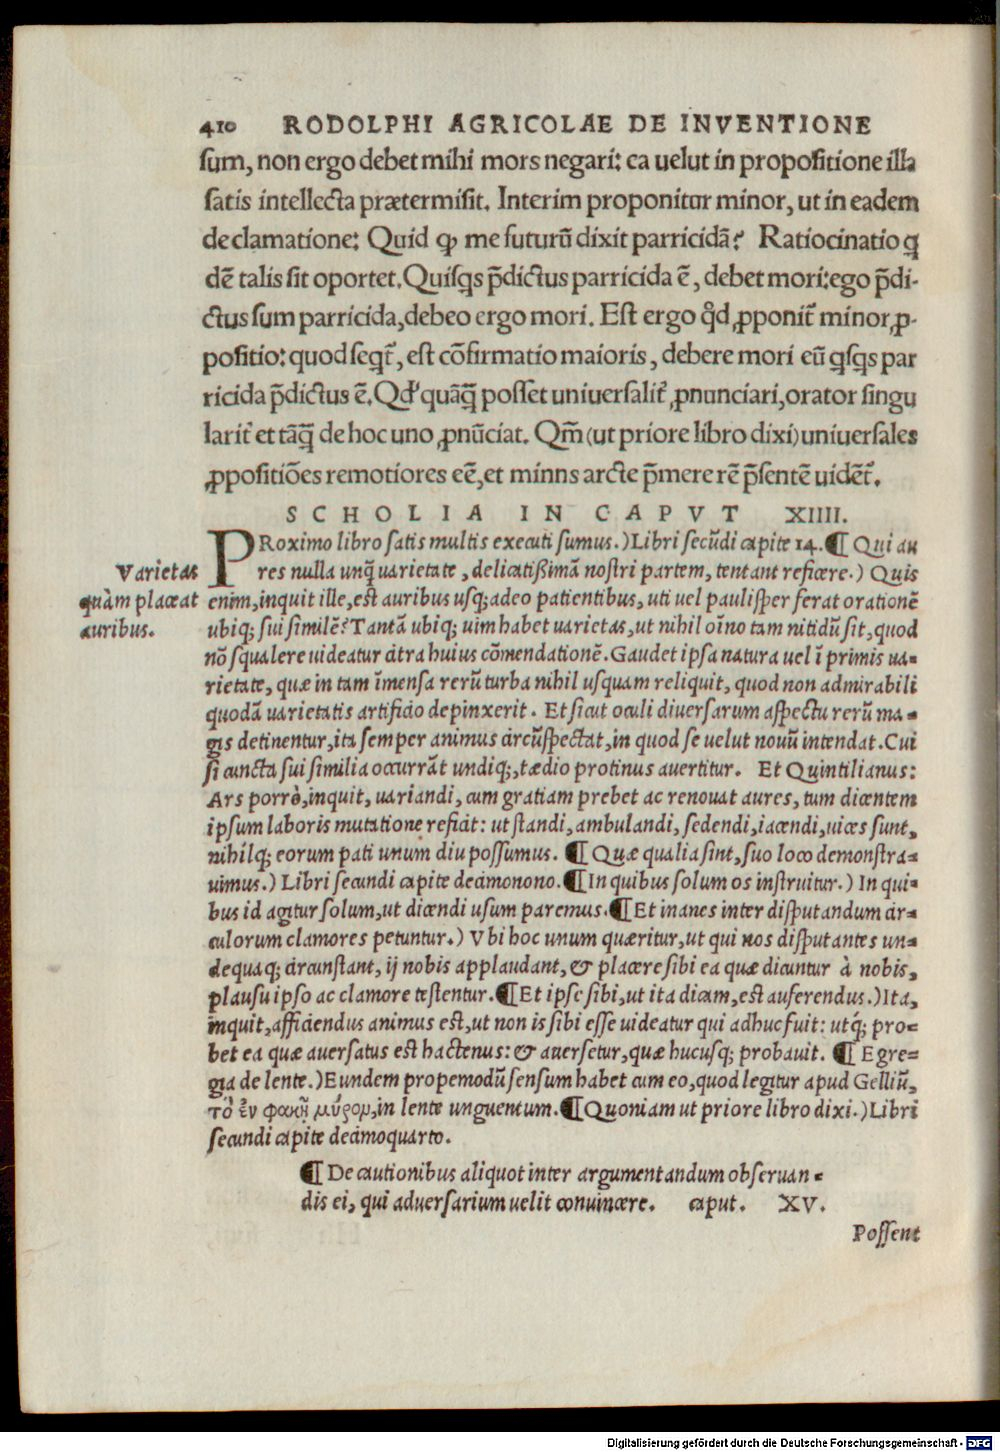 410 RODOLPHI AGRICOLAE DE INVENTIONE
ſum, non ergo debet mihi mors negari: ea uelut in propoſitione illa
ſatis intellecta prætermiſit. Interim proponitur minor, ut in eadem
declamatione: Quid ꝙ me futurũ dixit parricidã? Ratiocinatio q̃
dẽ talis ſit oportet. Quiſq̃s p̃dictus parricida ẽ, debet mori: ego p̃di-
ctus ſum parricida, debeo ergo mori. Eſt ergo qd̃ ꝓponit̃ minor, ꝓ-
poſitio: quod ſeqt̃, eſt cõfirmatio maioris, debere mori eũ q̃ſq̃s par
ricida p̃dictus ẽ. Qd̃ quãq̃ poſſet uniuerſalit̃ ꝓnunciari, orator ſingu
larit̃ et tãq̃ de hoc uno ꝓnũciat. Qm̃ (ut priore libro dixi) uniuerſales
ꝓpoſitiões remotiores eẽ, et minns arcte p̃mere rẽ p̃ſentẽ uidẽt̃.
SCHOLIA IN CAPVT XIIII.
PRoximo libro ſatis multis executi ſumus.) Libri ſecũdi capite 14. ¶ Qui au
Varietas
quàm placeat
auribus.
res nulla unq̃ uarietate, delicatißimã noſtri partem, tentant reficere.) Quis
enim, inquit ille, eſt auribus uſq; adeo patientibus, uti uel pauliſper ferat orationẽ
ubiq; ſui ſimilẽ? Tantã ubiq; uim habet uarietas, ut nihil oĩno tam nitidũ ſit, quod
nõ ſqualere uideatur citra huius cõmendationẽ. Gaudet ipſa natura uel ĩ primis ua-
rietate, quæ in tam ĩmenſa rerũ turba nihil uſquam reliquit, quod non admirabili
quodã uarietatis artificio depinxerit. Et ſicut oculi diuerſarum aſpectu rerũ ma-
gis detinentur, ita ſemper animus circũſpectat, in quod ſe uelut nouũ intendat. Cui
ſi cuncta ſui ſimilia occurrãt undiq;, tædio protinus auertitur. Et Quintilianus:
Ars porrò, inquit, uariandi, cum gratiam prebet ac renouat aures, tum dicentem
ipſum laboris mutatione reficit: ut ſtandi, ambulandi, ſedendi, iacendi, uices ſunt,
nihilq; eorum pati unum diu poſſumus. ¶ Quæ qualia ſint, ſuo loco demonſtra-
uimus.) Libri ſecundi capite decimonono. ¶ In quibus ſolum os inſtruitur.) In qui-
bus id agitur ſolum, ut dicendi uſum paremus. ¶ Et inanes inter diſputandum cir-
culorum clamores petuntur.) Vbi hoc unum quæritur, ut qui nos diſputantes un-
dequaq; circunſtant, ij nobis applaudant, & placere ſibi ea quæ dicuntur à nobis,
plauſu ipſo ac clamore teſtentur. ¶ Et ipſe ſibi, ut ita dicam, eſt auferendus.) Ita,
inquit, afficiendus animus eſt, ut non is ſibi eſſe uideatur qui adhuc fuit: utq́; pro-
bet ea quæ auerſatus eſt hactenus: & auerſetur, quæ hucuſq; probauit. ¶ Egre-
gia de lente.) Eundem propemodũ ſenſum habet cum eo, quod legitur apud Gelliũ,
τὸ ἐν φακῇ μύρον, in lente unguentum. ¶ Quoniam ut priore libro dixi.) Libri
ſecundi capite decimoquarto.
¶ De cautionibus aliquot inter argumentandum obſeruan-
dis ei, qui aduerſarium uelit conuincere. caput. XV.
Poſſent
Digitalisierung gefördert durch die Deutsche Forschungsgemeinschaft - DFG